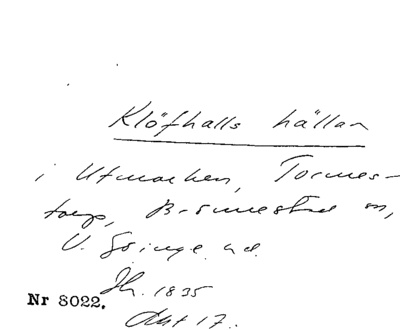 Klöfhalls hällan
i Utmarken, Tormes-
torp, Brömestad sn,
V. Göinge hd.
Jh. 1835
Nr 8022.
Akt 17.